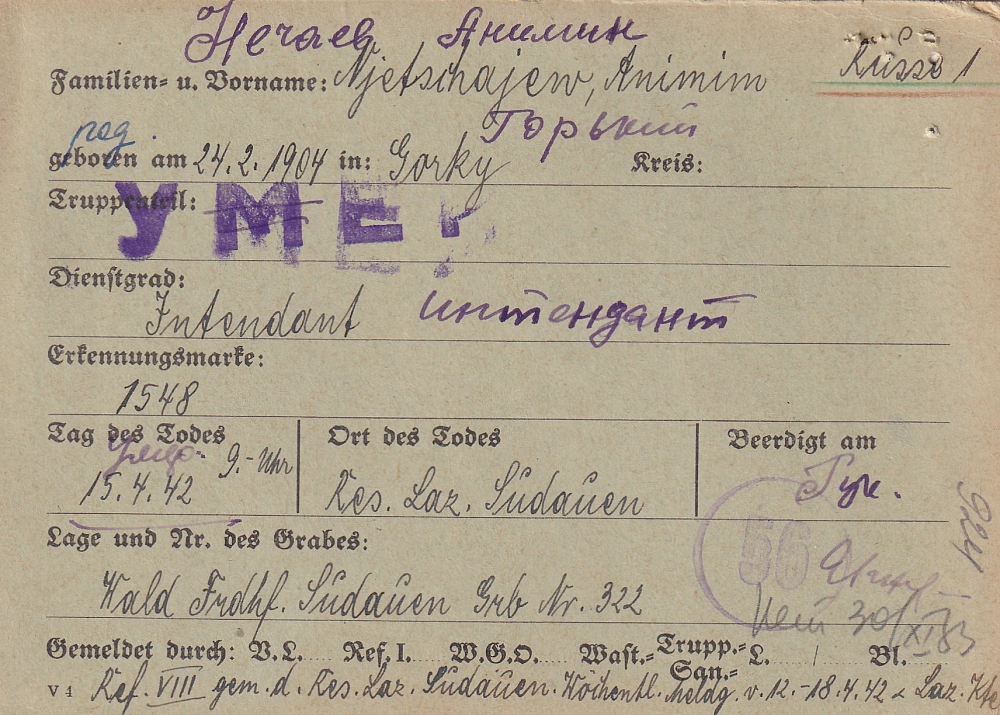 Нечаев Анимин
Russe 1
Familien- u. Vorname: Njetschajew, Animim
Горький
род.
geboren am 24.2.1904 in: Gorky Kreis:
Truppenteil:
УМЕР
Dienstgrad:
Intendant интендант
Erkennungsmarke:
1548
Tag des Todes Ort des Todes Beerdigt am
9.-Uhr
15.4.42 Res. Laz. Sudauen
Lage und Nr. des Grabes:
56
Wald Frdhf. Sudauen Grb Nr. 322
30/XI 83
Gemeldet durch: V.L. Ref. I. W.G.O. Wast.- Trupp.- San.- L. / Bl.
V 4 Ref. VIII gem. d. Res. Laz. Sudauen. Wöchentl. Meldg. v. 12.-18.4.42 Laz. Kte